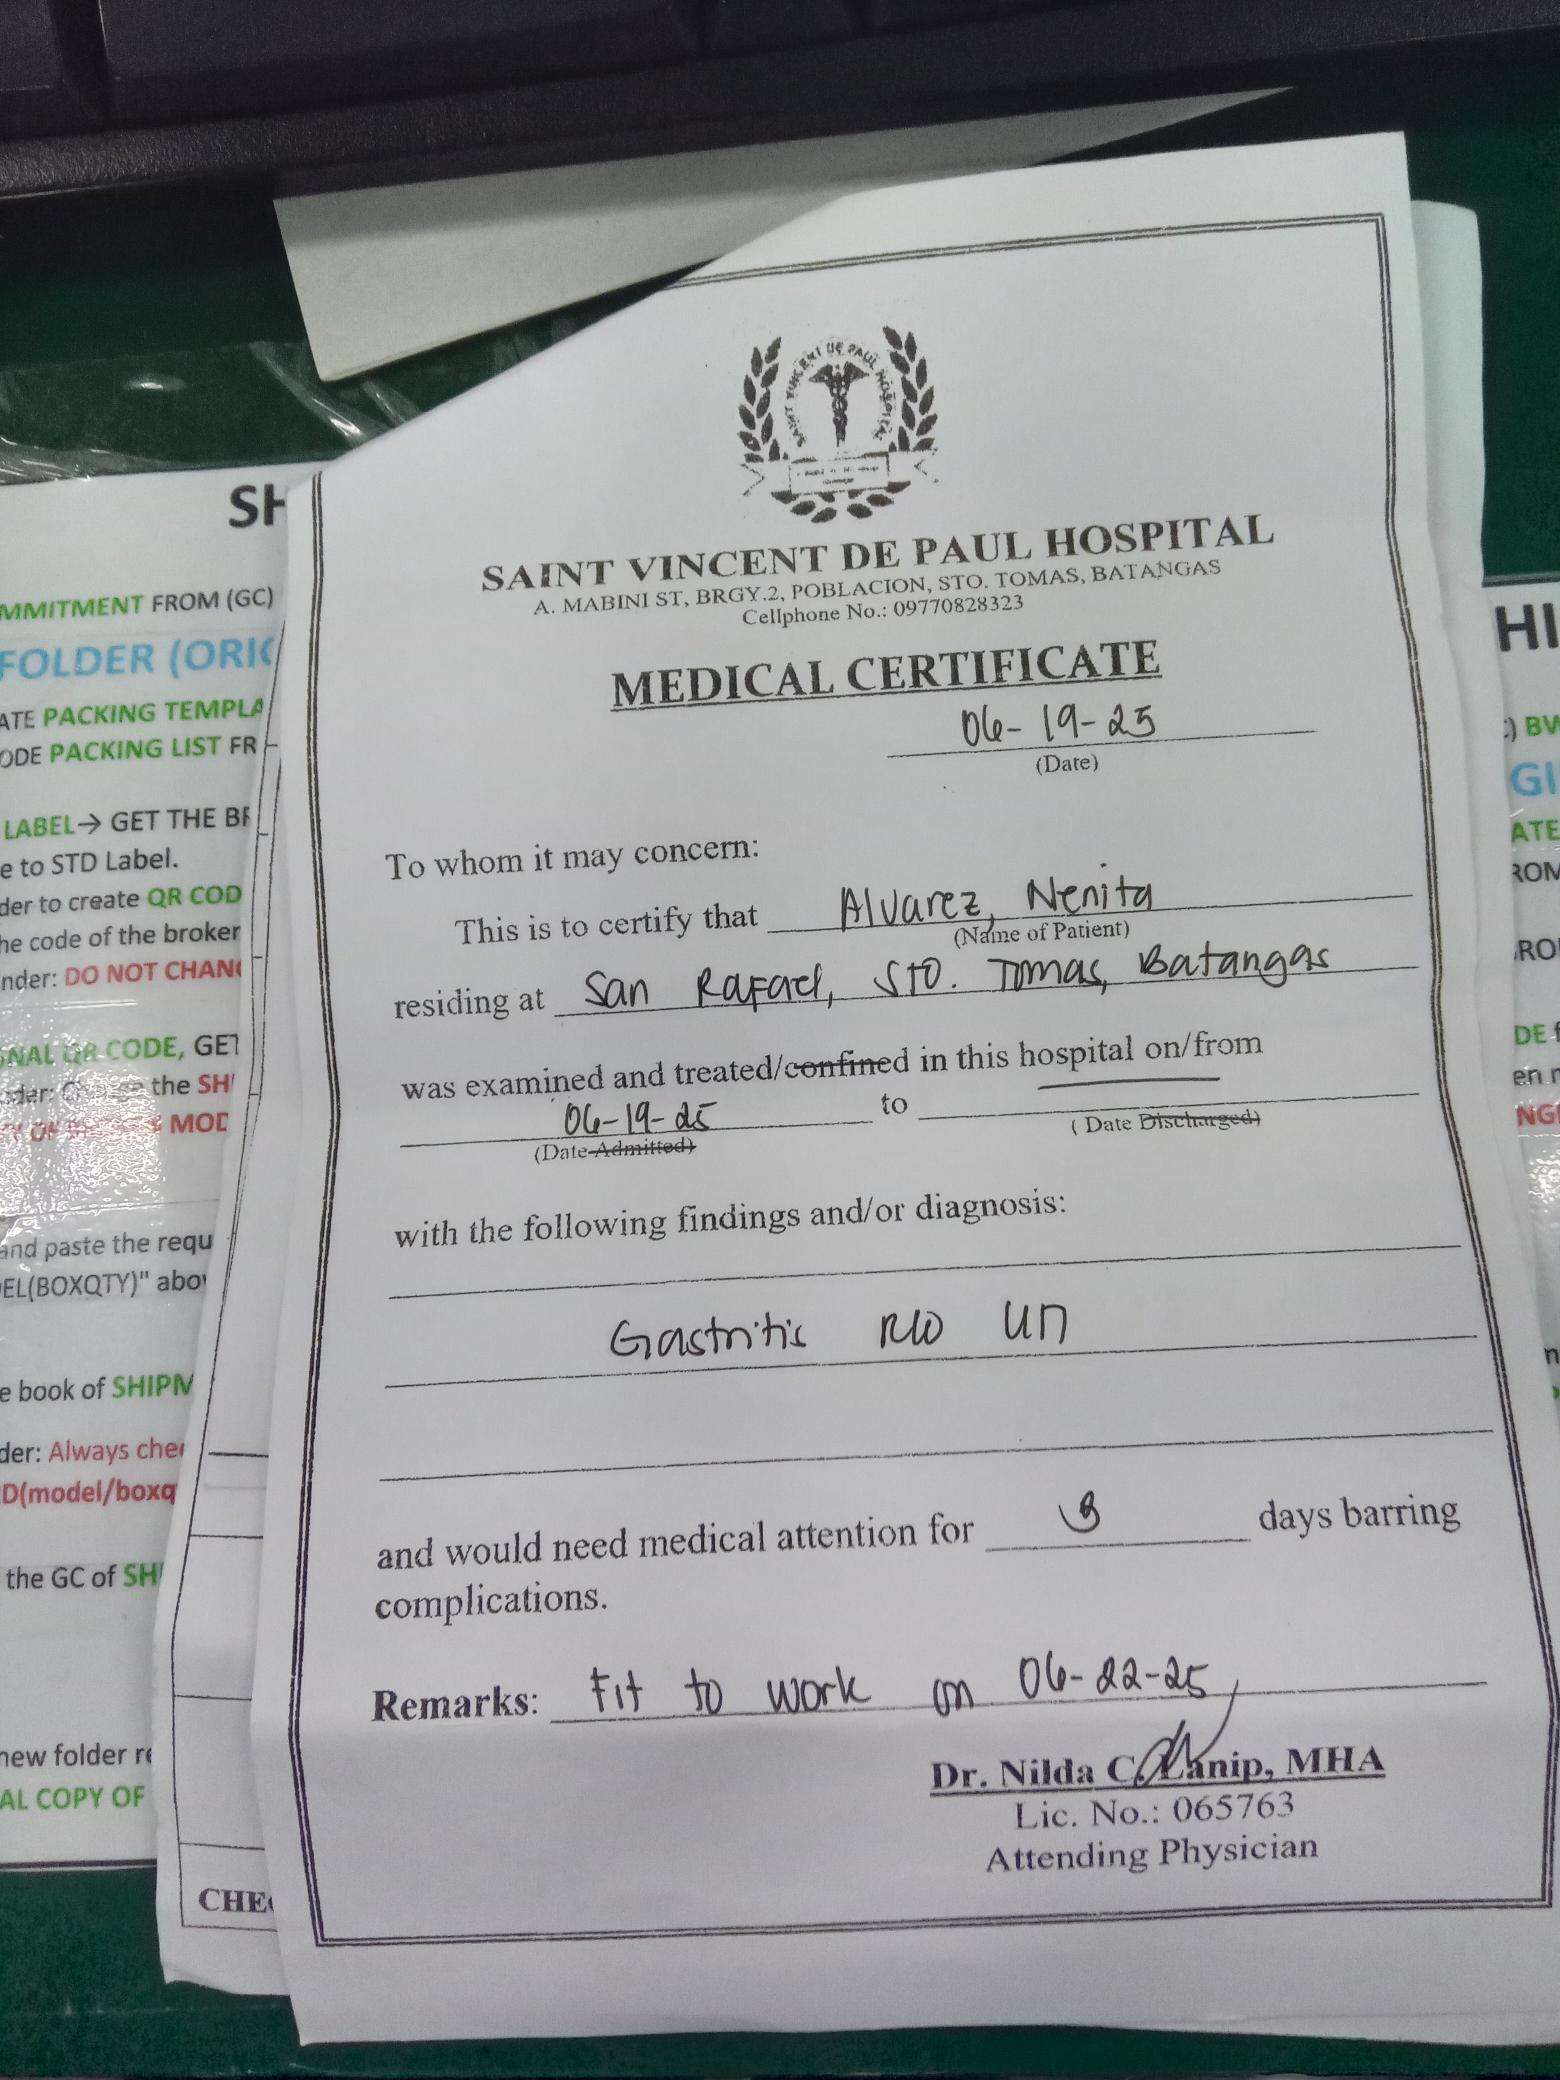 SAINT VINCENT DE PAUL HOSPITAL
SAINT VINCENT DE PAUL HOSPITAL
A. MABINI ST, BRGY.2, POBLACION, STO. TOMAS, BATANGAS
Cellphone No.: 09770828323
MEDICAL CERTIFICATE
06-19-25
(Date)
To whom it may concern:
This is to certify that Alvarez, Nenita
(Name of Patient)
residing at San Rafael, STO. Tomas, Batangas
was examined and treated/confined in this hospital on/from
06-19-25 to
(Date Admitted) ( Date Discharged)
with the following findings and/or diagnosis:
Gastritis R/O
and would need medical attention for 3 days barring
complications.
Remarks: Fit to work on 06-22-25
Dr. Nilda C. Lanip, MHA
Lic. No.: 065763
Attending Physician
SH
MMITMENT FROM (GC)
FOLDER (ORIG
ATE PACKING TEMPLA
ODE PACKING LIST FR
LABEL→ GET THE BR
e to STD Label.
der to create QR COD
he code of the broker
nder: DO NOT CHANG
QR CODE, GET
the SH
MOD
and paste the requ
EL(BOXQTY)" abov
e book of SHIPM
der: Always chec
D(model/boxq
the GC of SH
new folder re
AL COPY OF
CHEC
HI
) BW
GI
ATE
ROM
RO
DE f
en r
NG